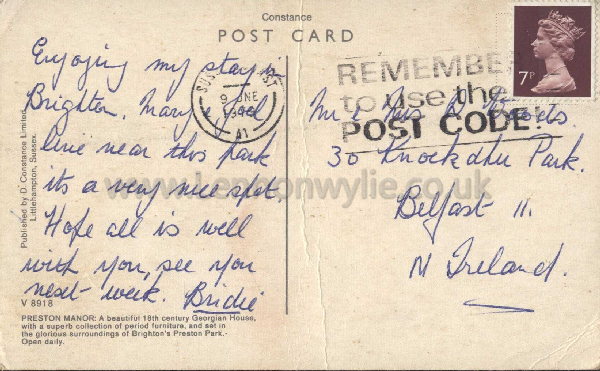 Constance
POST CARD
Enjoying my stay in
Brighton. Mary and
live near this park
its a very nice spot.
Hope all is well
with you, see you
next week. Bridie
V 8918
PRESTON MANOR: A beautiful 18th century Georgian House,
with a superb collection of period furniture, and set in
the glorious surroundings of Brighton's Preston Park.-
Open daily.
Published by D. Constance Limited,
Littlehampton, Sussex.
9 JUNE
REMEMBER
to use the
POST CODE!
7P
Mr & Mrs
30 Knockdhu Park.
Belfast 11.
N Ireland.
www.lennonwylie.co.uk